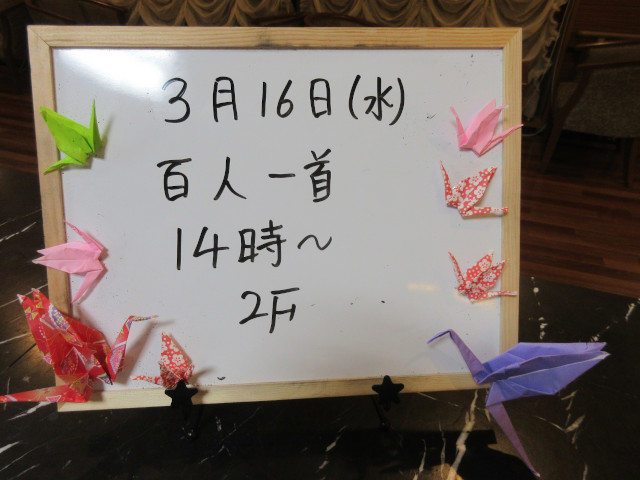 3月16日(水)
百人一首
14時～
2F